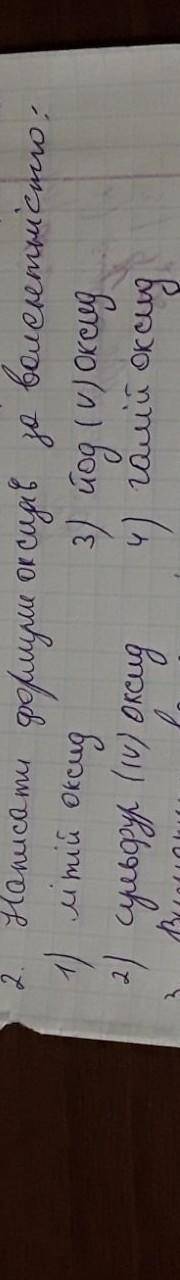 2. Написати формули оксидів за валентністю:
1) літій оксид 3) йод (V) оксид
2) сульфур (IV) оксид 4) галій оксид
3.